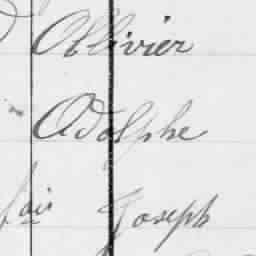 Ollivier
Adolphe
Joseph